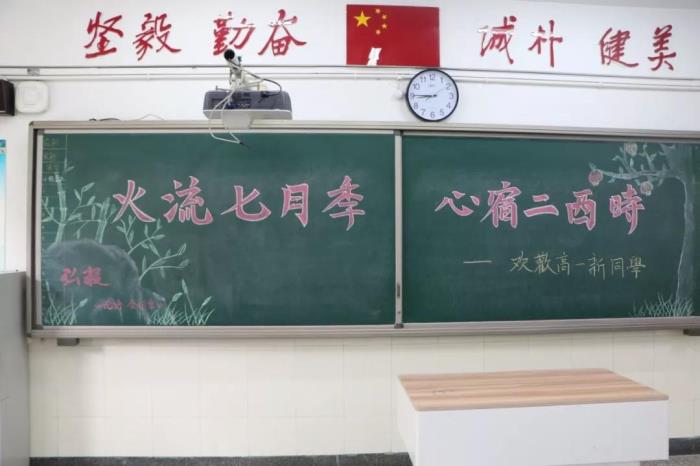 坚毅 勤奋 诚朴 健美
火流七月季 心宿二西時
— 欢歡高一新同學
弘毅